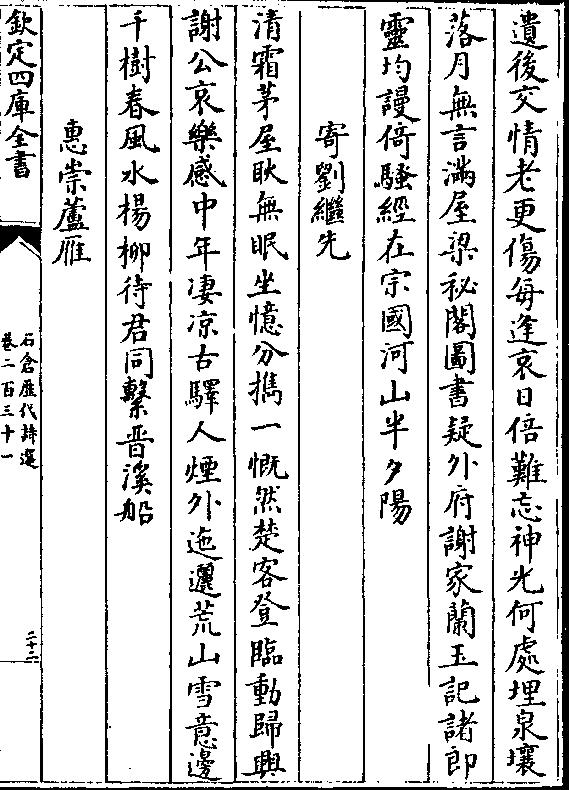 遺後交情老更傷每逢哀日倍難忘神光何處埋泉壤
落月無言滿屋梁秘閣圖書疑外府謝家蘭玉記諸郎
靈均謾倚騷經在宗國河山半夕陽
寄劉繼先
清霜茅屋耿無眠坐憶分攜一慨然楚客登臨動歸興
謝公哀樂感中年凄凉古驛人煙外迤邐荒山雪意邊
千樹春風水楊柳待君同繫晋溪船
惠崇蘆雁
欽定四庫全書
石倉歷代詩選
卷二百三十一
二十二